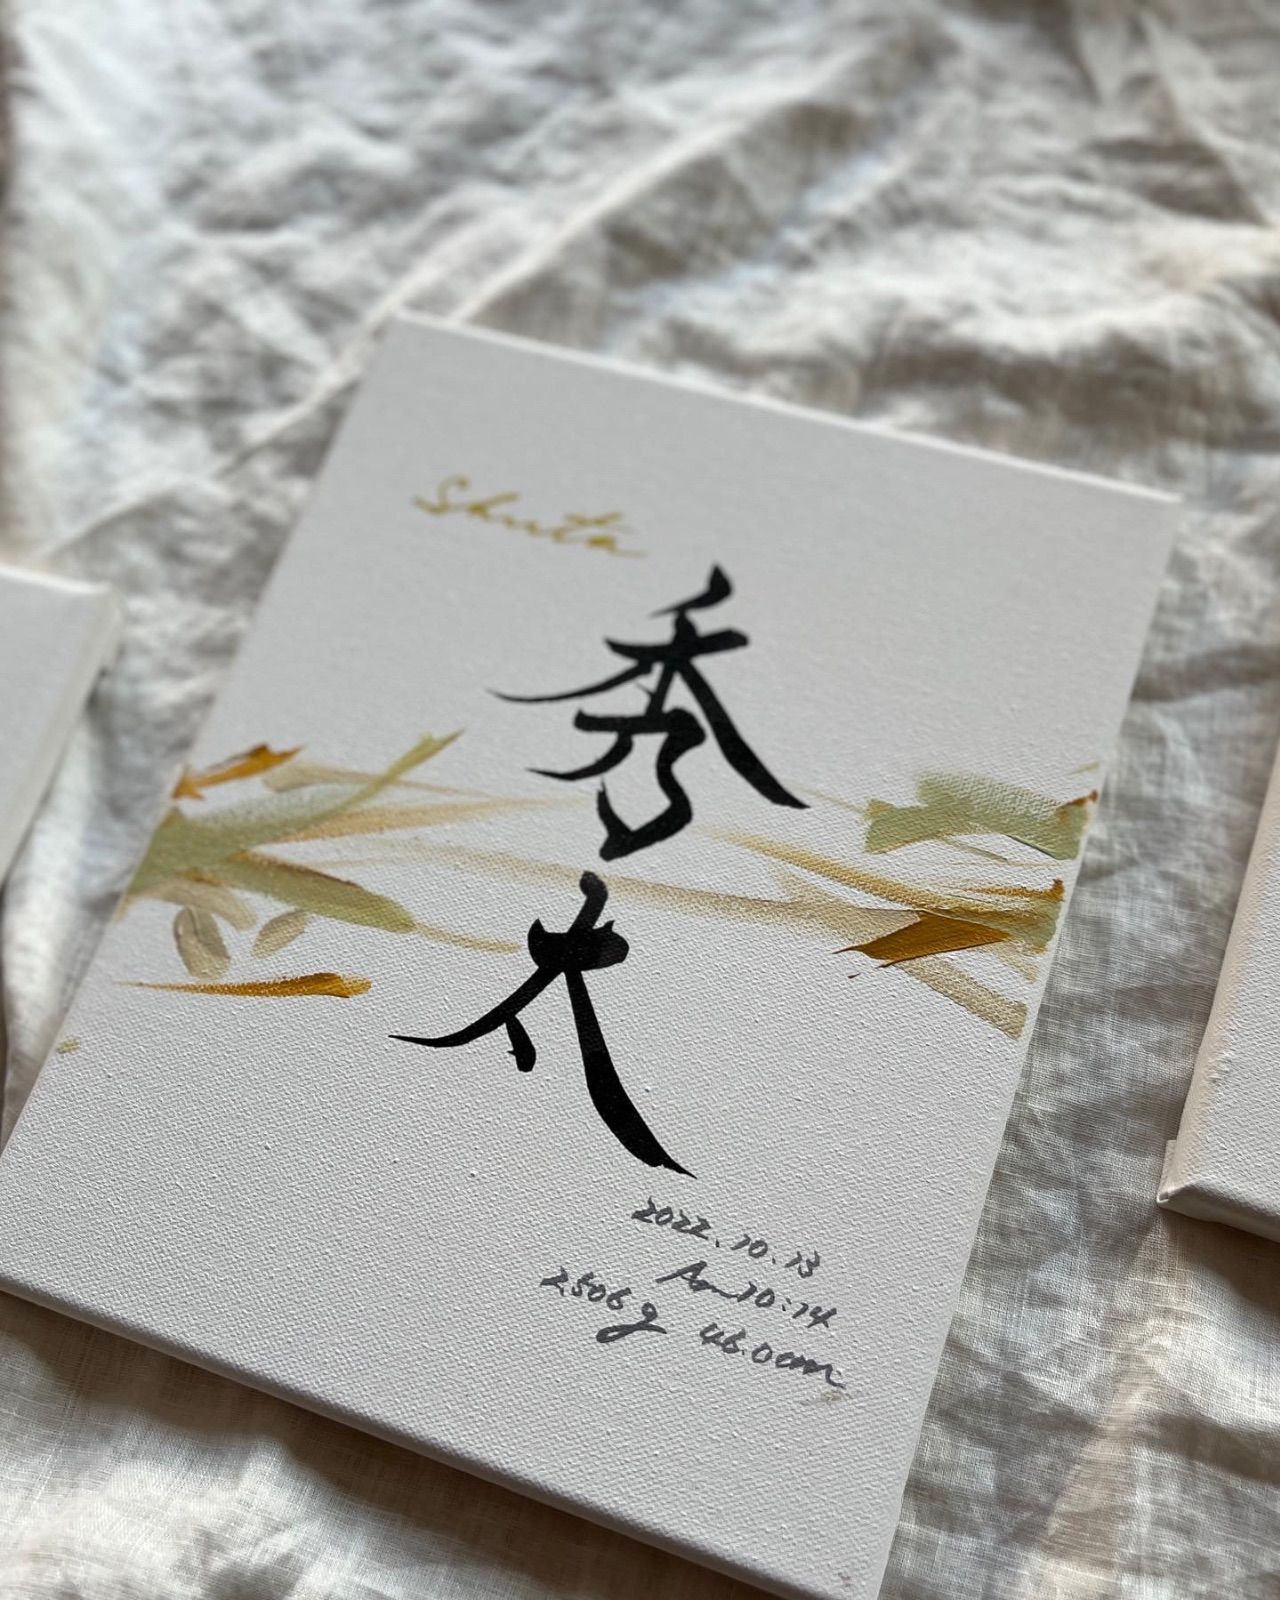 Shuta
秀太
2022.10.13
Am10:14
2,506g 46.0cm